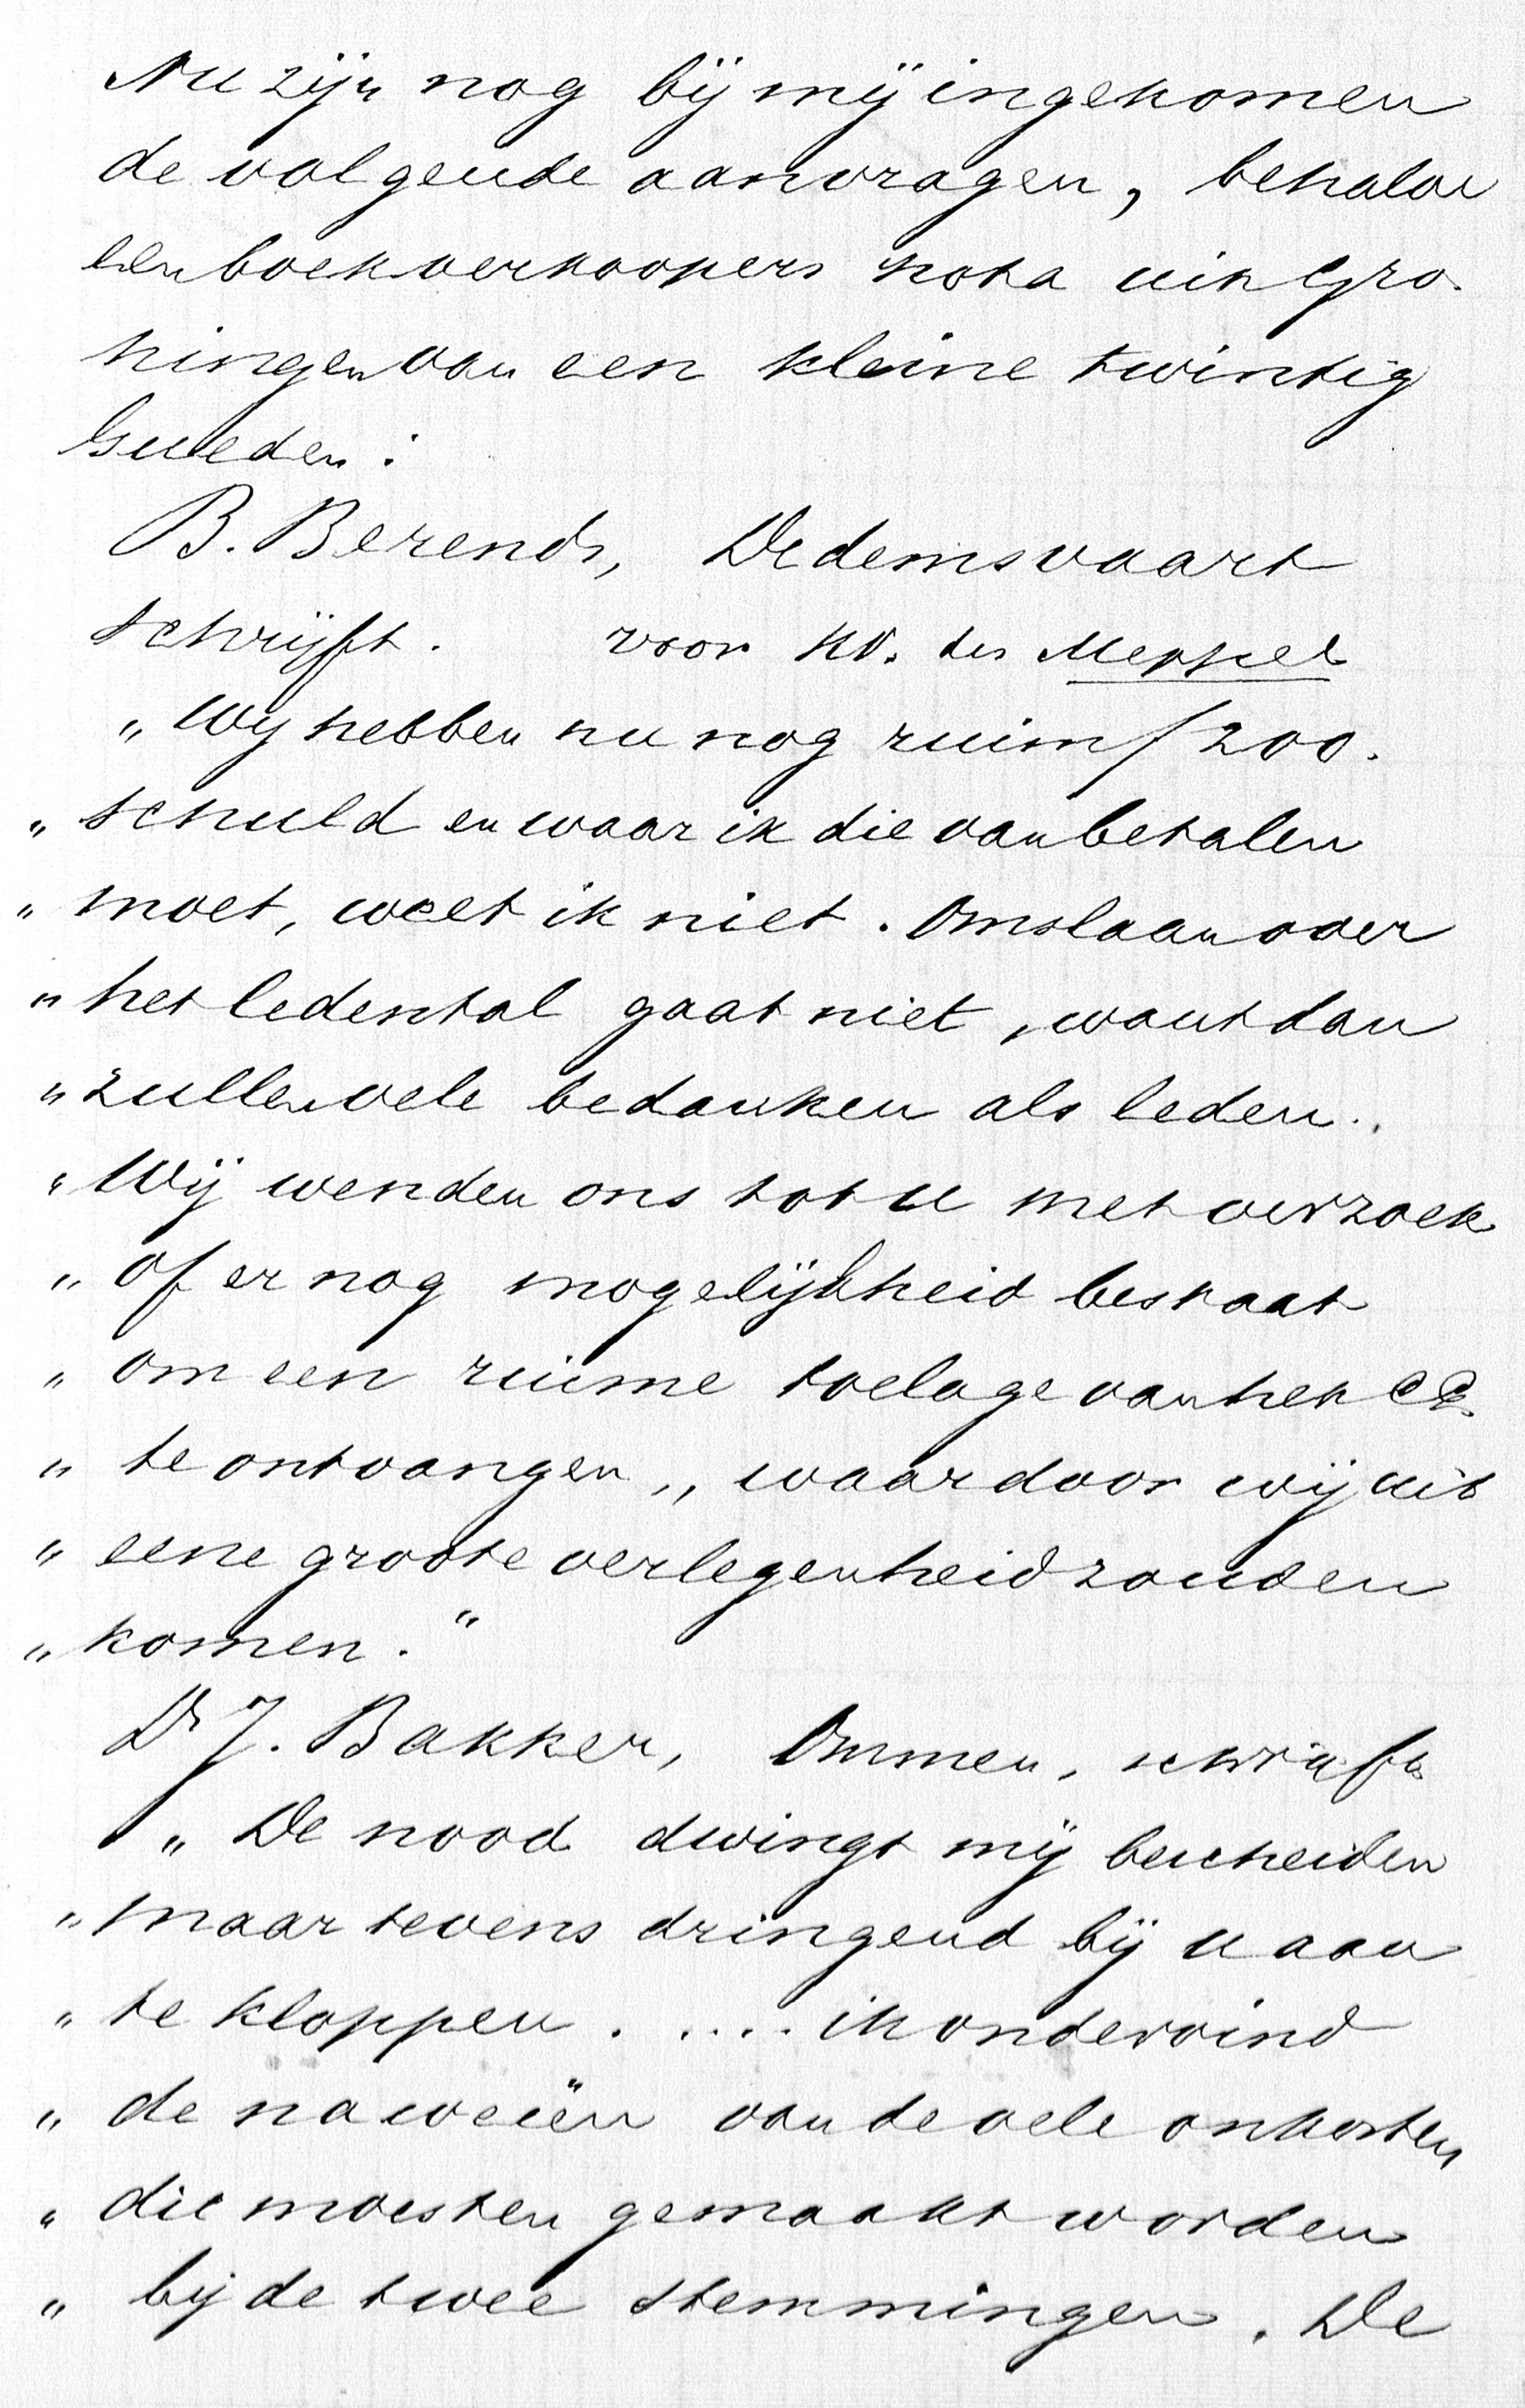 Nu zijn nog bij mij ingekomen
de volgende aanvragen, behalve
een boekverkoopers nota uit Gro-
ningen van een kleine twintig
Gulden:
B. Berends, Dedemsvaart
schrijft. voor KV. des Meppel
„Wij hebben nu nog ruim ƒ 200.
„schuld en waar ik die van betalen
„moet, weet ik niet. Omslaan over
„het ledental gaat niet, want dan
„zullen vele bedanken als leden.
„Wij wenden ons tot u met verzoek
„of er nog mogelijkheid bestaat
„om een ruime toelage van het CC.
„te ontvangen, waardoor wij uit
„eene groote verlegenheid zouden
„komen."
Dr J. Bakker, Ommen, schrijft
„De nood dwingt mij bescheiden
„maar tevens dringend bij u aan
„te kloppen. .... ik ondervind
„de naweeën van de vele onkosten
„die moesten gemaakt worden
„bij de twee stemmingen. De